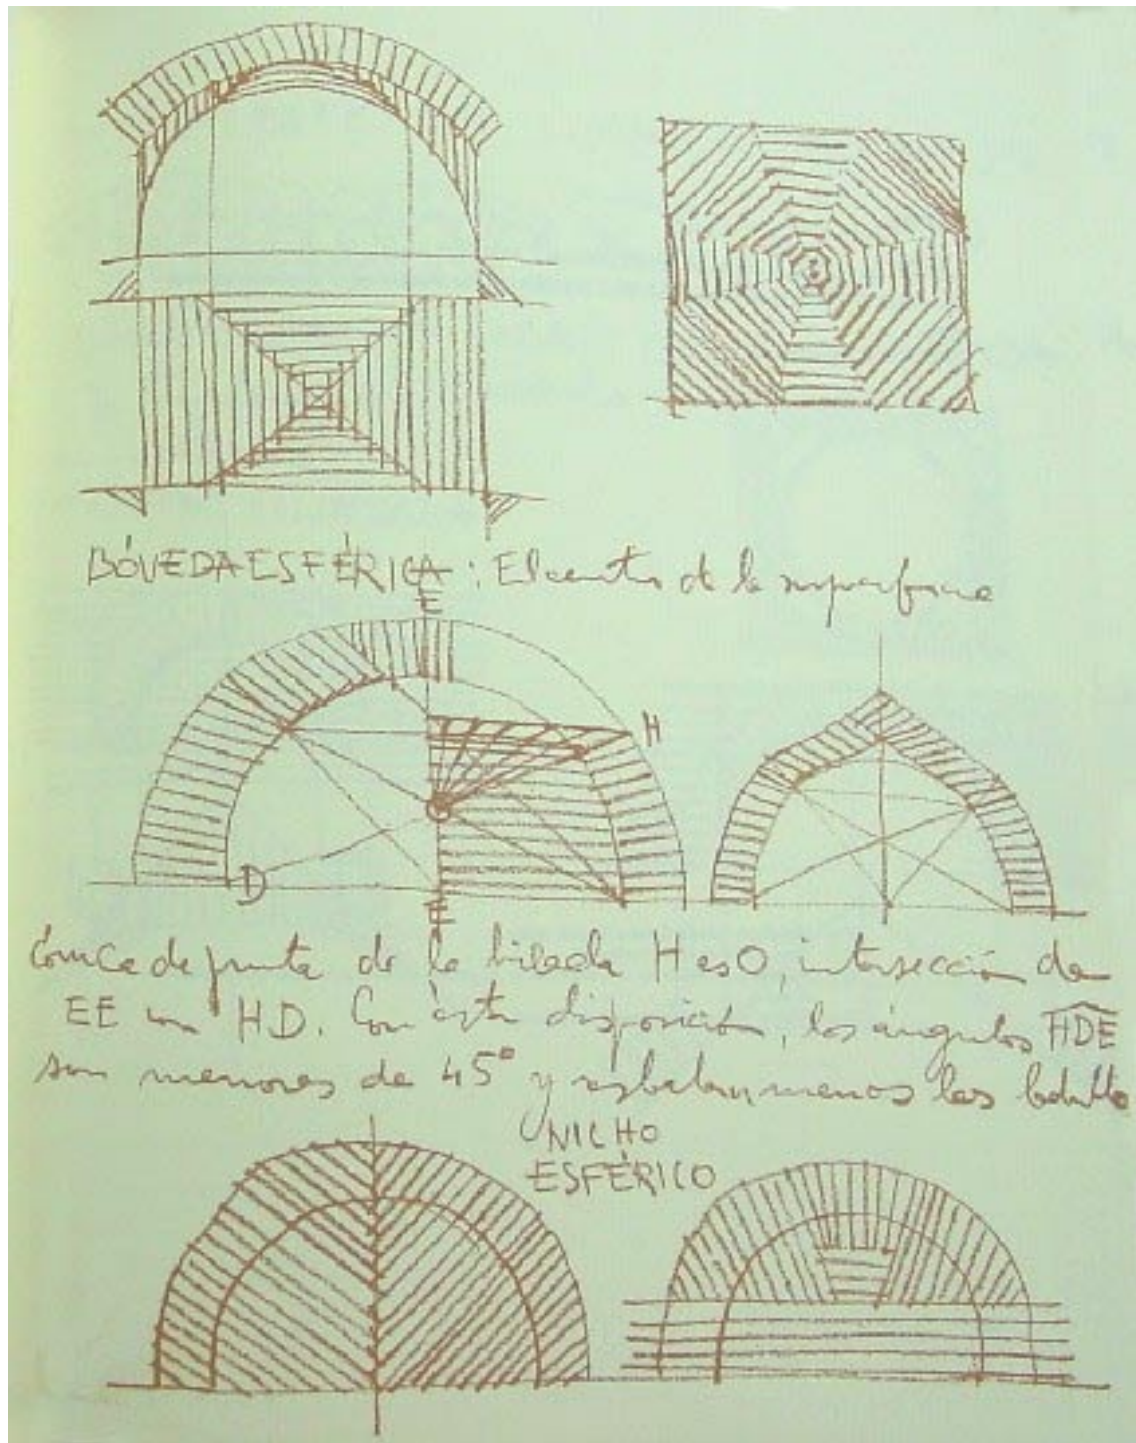 BÓVEDA ESFÉRICA: El centro de la superficie
E
H
O
D
E
cónica de junta de la hilada H es O, intersección de
EE con HD. Con ésta disposición, los ángulos HDE
son menores de 45° y resbalan menos los ladrillos
NICHO
ESFÉRICO